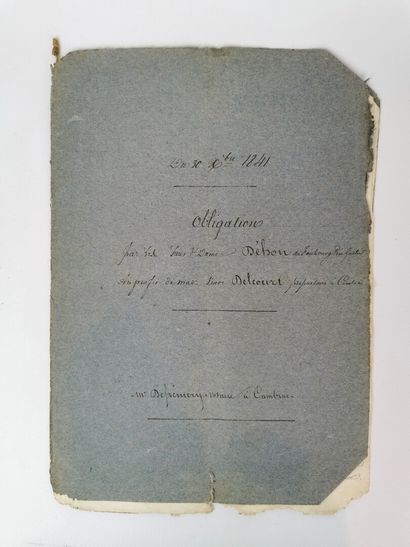 Du 30 Xbre 1841
Obligation
par les Sieur & Dame Déhon du Faubourg
Au profit de Made Delcourt à
Me Defrémery, notaire à Cambrai